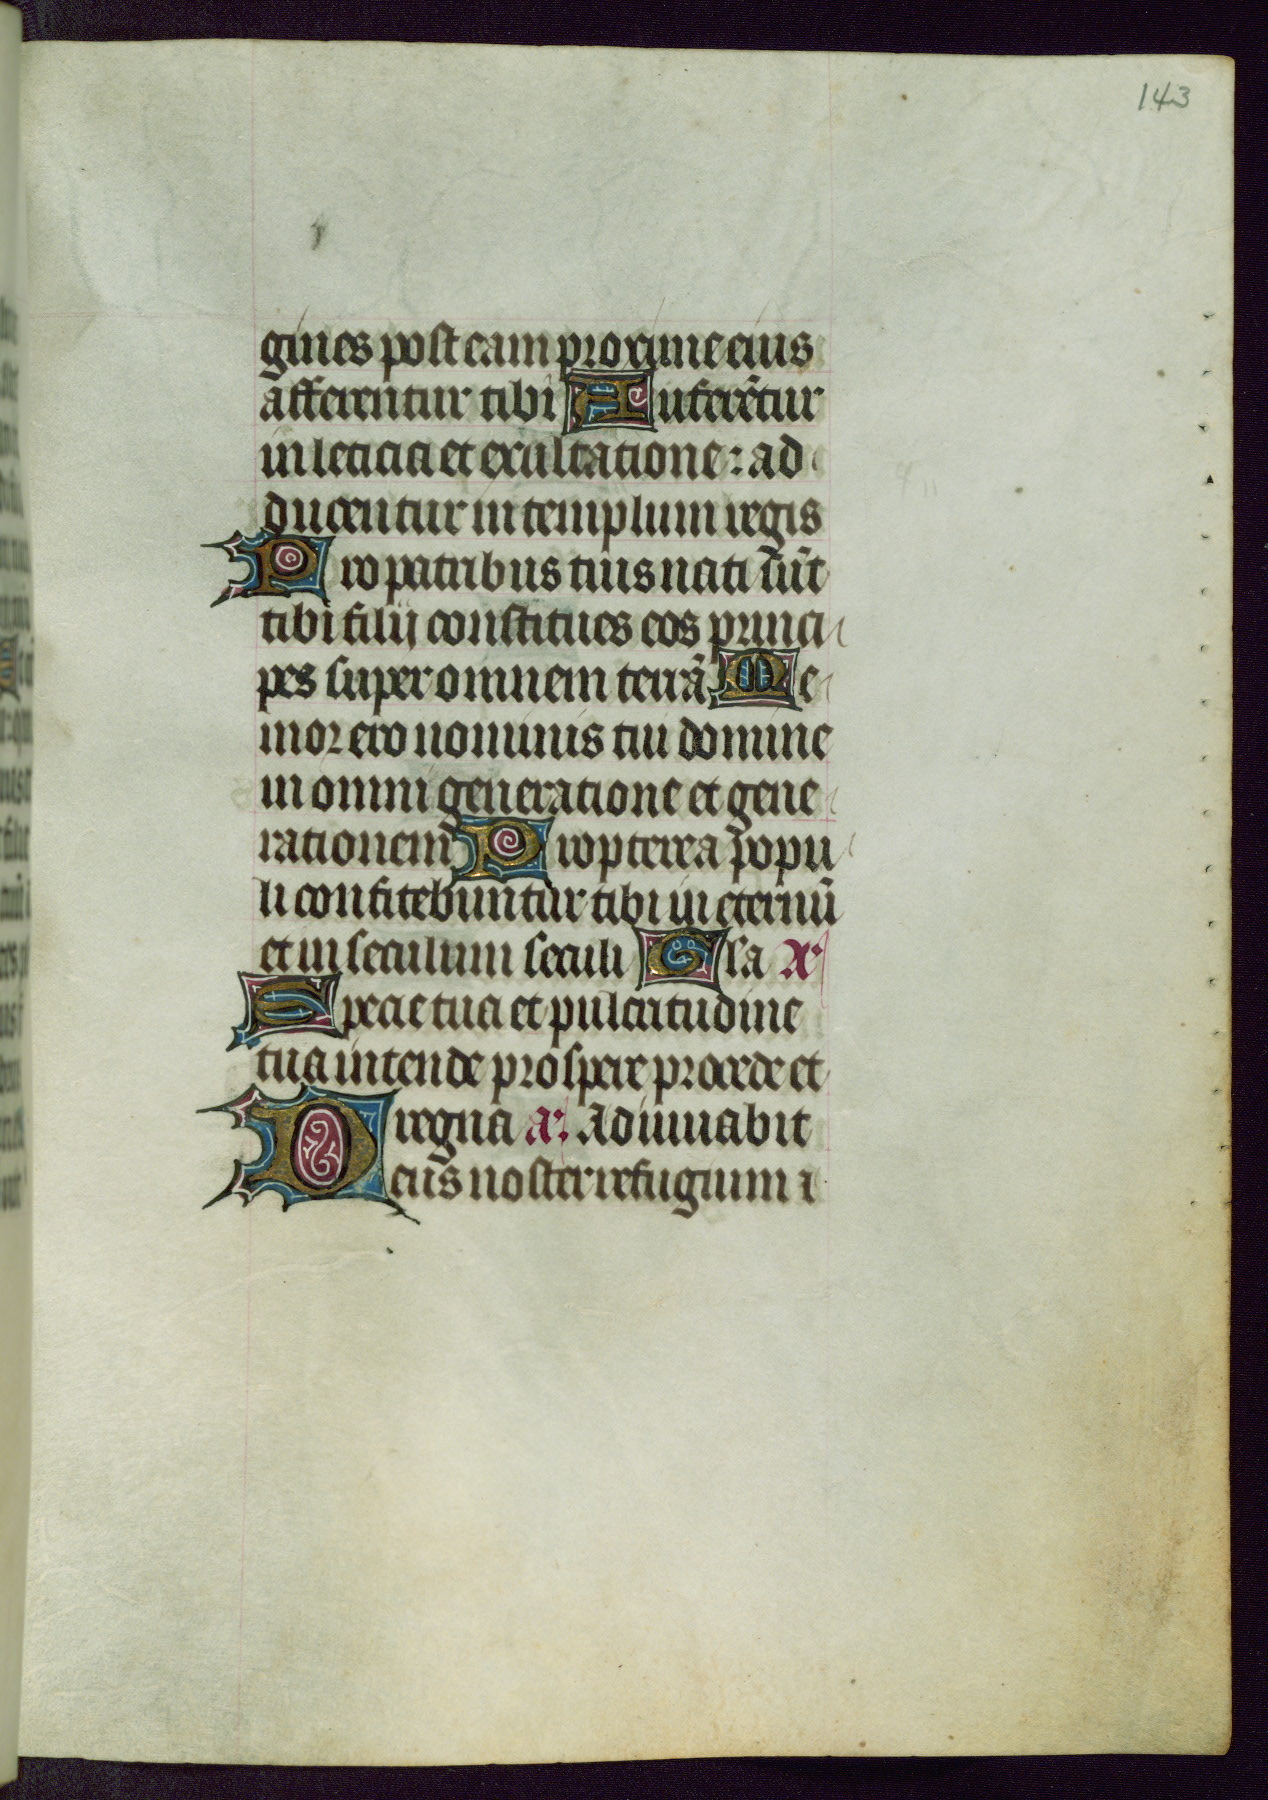 143
gines post eam proxime eius
afferentur tibi Auferētur
in leticia et exultatione : ad
ducentur in templum regis
Pro patribus tuis nati sūt
tibi filij constitues eos princi
pes super omnem terrā Me
mor ero nominis tui domine
in omni generatione et gene
rationem Propterea popu
li confitebuntur tibi in eternū
et in seculum seculi Gl'a A'
Specie tua et pulcritudine
tua intende prospere procede et
regna a'. Adiuuabit
Deus noster refugium ⁊